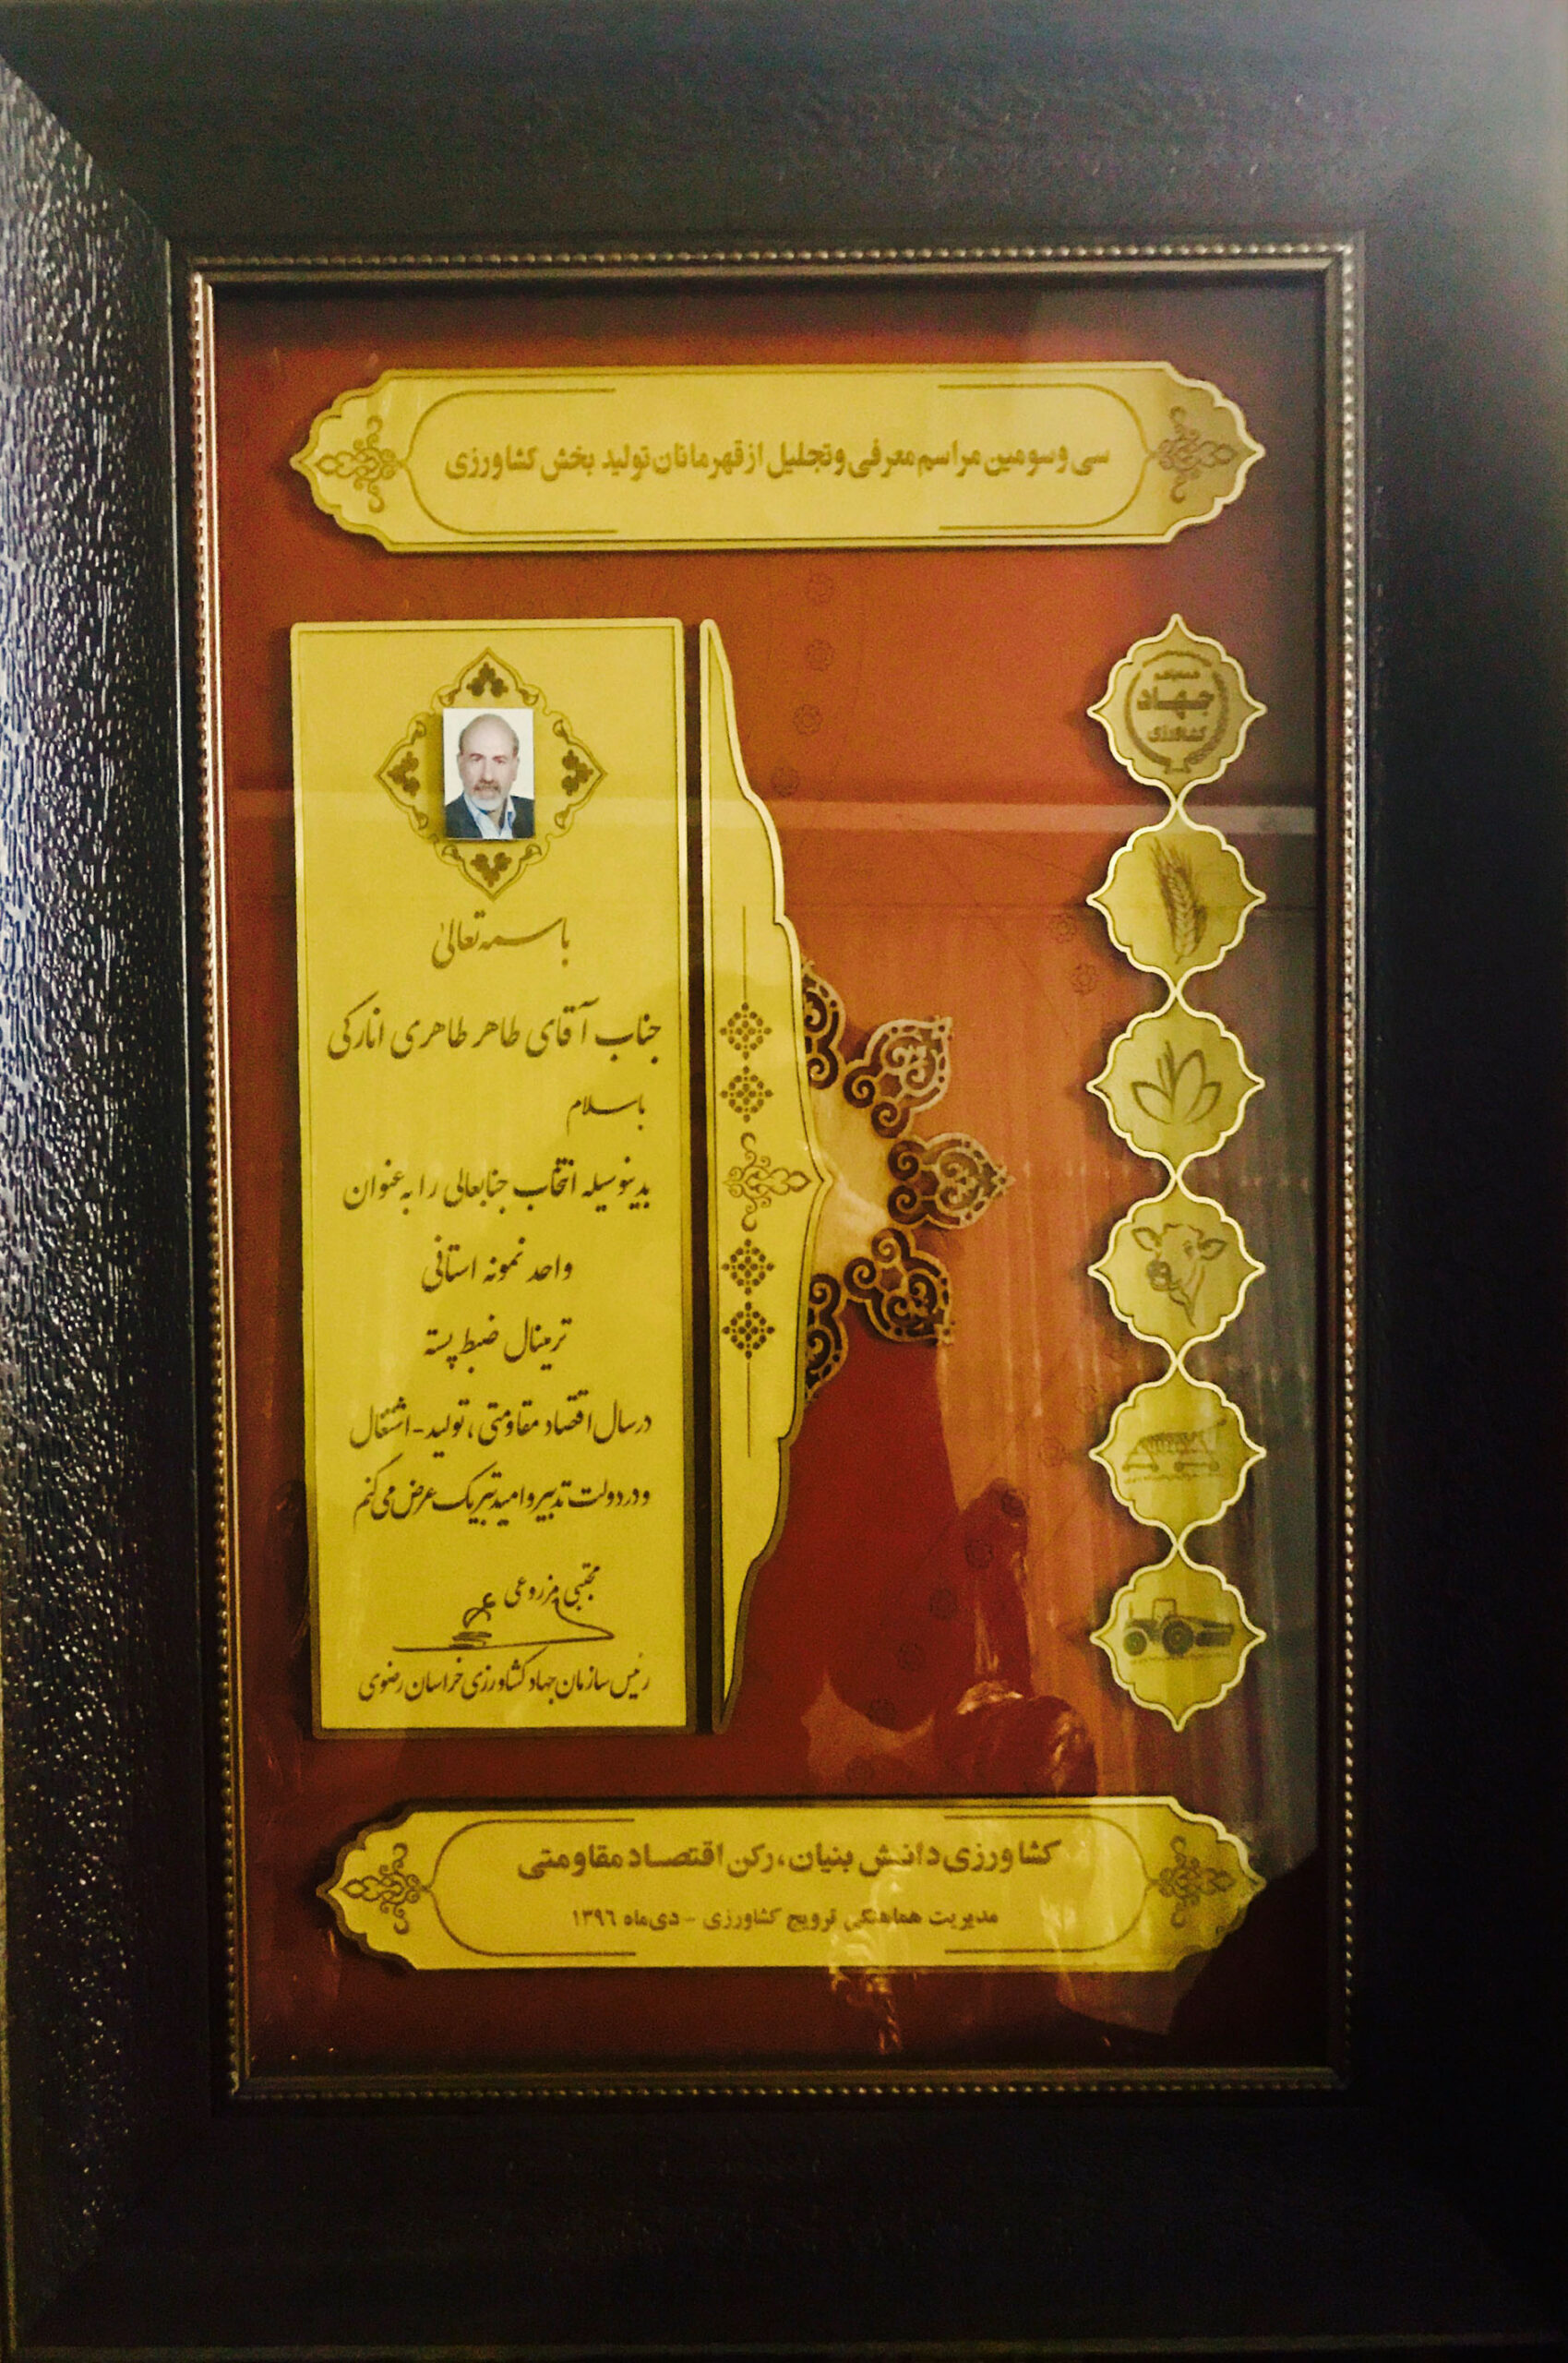 سی و سومین مراسم معرفی و تجلیل از قهرمانان تولید بخش کشاورزی
جهاد
کشاورزی
باسمه تعالی
جناب آقای طاهر طاهری انارکی
باسلام
بدینوسیله انتخاب جنابعالی را به عنوان
واحد نمونه استانی
ترمینال ضبط پسته
درسال اقتصاد مقاومتی، تولید-اشتغال
و در دولت تدبیر و امید تبریک عرض می کنم
مجتبی مزروعی
رئیس سازمان جهاد کشاورزی خراسان رضوی
کشاورزی دانش بنیان، رکن اقتصاد مقاومتی
مدیریت هماهنگی ترویج کشاورزی - دی ماه ۱۳۹۶